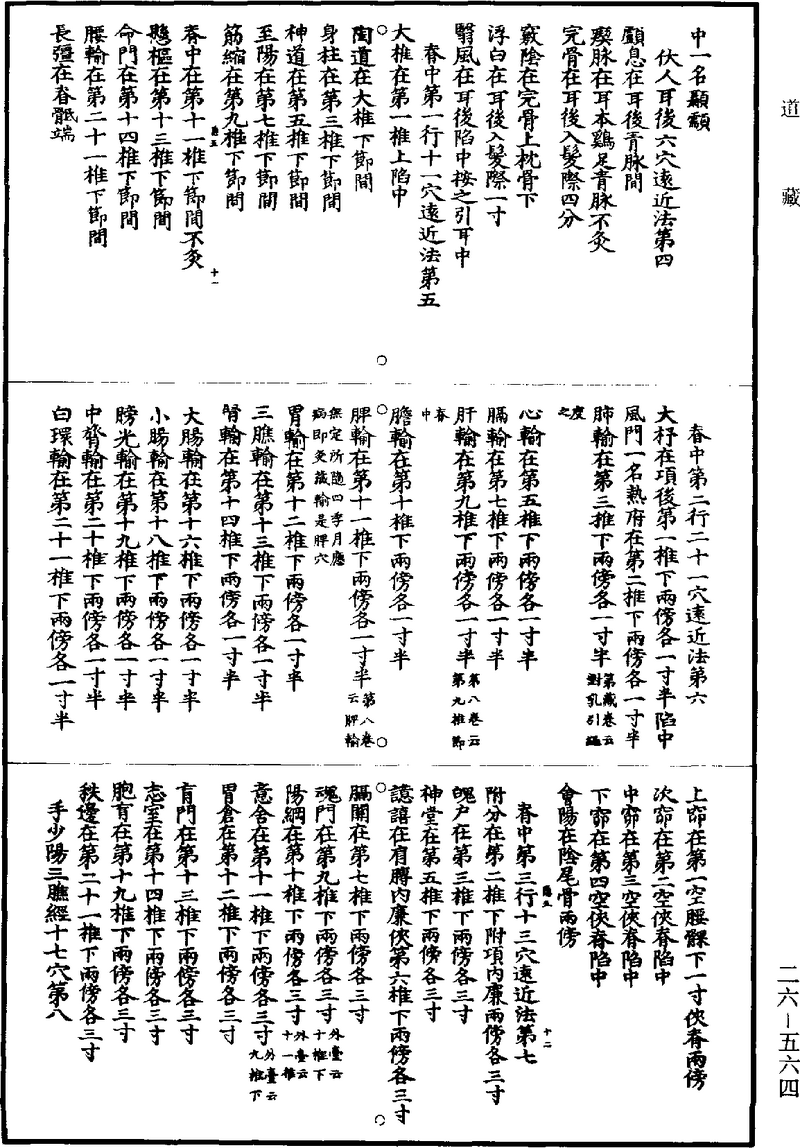 道藏
中一名顳顬
伏人耳後六穴遠近法第四
顱息在耳後青脉間
瘈脉在耳本鷄足青脉不灸
完骨在耳後入髮際四分
竅陰在完骨上枕骨下
浮白在耳後入髮際一寸
翳風在耳後陷中按之引耳中
脊中第一行十一穴遠近法第五
大椎在第一椎上陷中
陶道在大椎下節間
身柱在第三椎下節間
神道在第五椎下節間
至陽在第七椎下節間
筋縮在第九椎下節間
十一
脊中在第十一椎下節間不灸
懸樞在第十三椎下節間
命門在第十四椎下節間
腰輸在第二十一椎下節間
長彊在脊骶端
脊中第二行二十一穴遠近法第六
大杼在項後第一椎下兩傍各一寸半陷中
風門一名熱府在第二椎下兩傍各一寸半
肺輸在第三椎下兩傍各一寸半第藏卷云對乳引繩
度之
心輸在第五椎下兩傍各一寸半
膈輸在第七椎下兩傍各一寸半
肝輸在第九椎下兩傍各一寸半第八卷云第九椎節
脊中
膽輸在第十椎下兩傍各一寸半
脾輸在第十一椎下兩傍各一寸半第八卷云脾輸
無定所隨四季月應病即灸藏輸是脾穴
胃輸在第十二椎下兩傍各一寸半
三膲輸在第十三椎下兩傍各一寸半
腎輸在第十四椎下兩傍各一寸半
大腸輸在第十六椎下兩傍各一寸半
小腸輸在第十八椎下兩傍各一寸半
膀光輸在第十九椎下兩傍各一寸半
中膂輸在第二十椎下兩傍各一寸半
白環輸在第二十一椎下兩傍各一寸半
上窌在第一空腰髁下一寸俠脊兩傍
次窌在第二空俠脊陷中
中窌在第三空俠脊陷中
下窌在第四空俠脊陷中
會陽在陰尾骨兩傍
十二
脊中第三行十三穴遠近法第七
附分在第二椎下附項內廉兩傍各三寸
魄戶在第三椎下兩傍各三寸
神堂在第五椎下兩傍各三寸
譩譆在肩髆內廉俠第六椎下兩傍各三寸
膈關在第七椎下兩傍各三寸
魂門在第九椎下兩傍各三寸外臺云十椎下
陽綱在第十椎下兩傍各三寸外臺云十一椎
意舍在第十一椎下兩傍各三寸外臺云九椎下
胃倉在第十二椎下兩傍各三寸
肓門在第十三椎下兩傍各三寸
志室在第十四椎下兩傍各三寸
胞肓在第十九椎下兩傍各三寸
秩邊在第二十一椎下兩傍各三寸
手少陽三膲經十七穴第八
二六—五六四